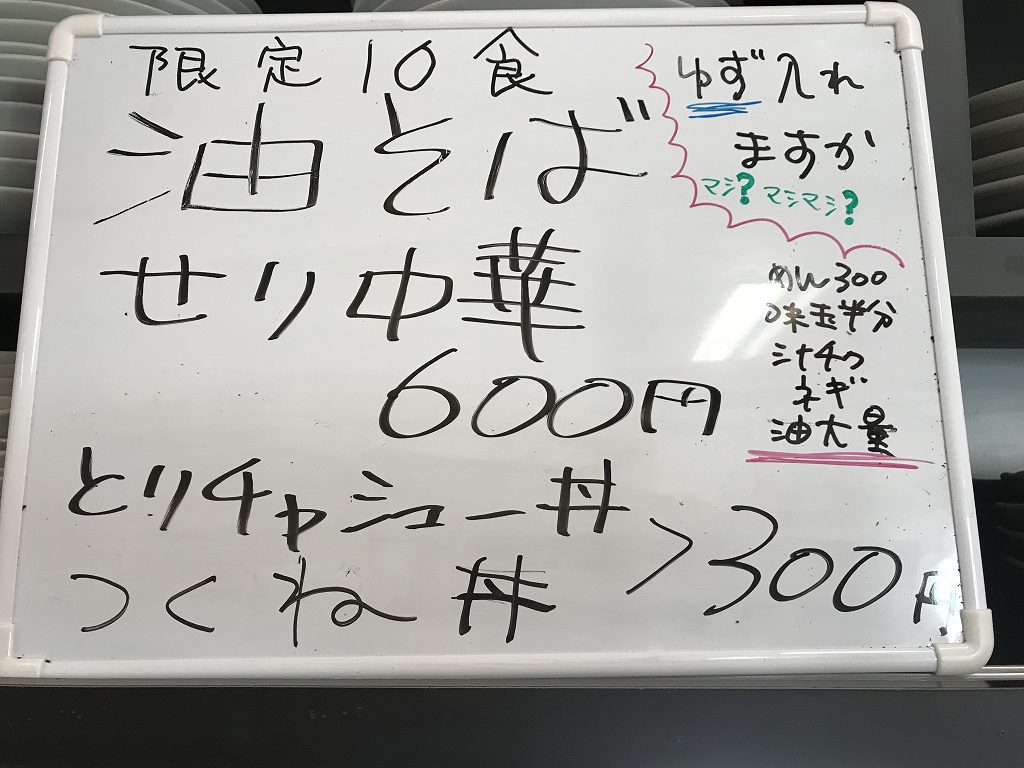 限定10食
油そば
せり中華
600円
とりチャシュー丼
つくね丼 > 300円
ゆず入れ
ますか
マシ? マシマシ?
めん300
味玉半分
汁チク
ネギ
油大量